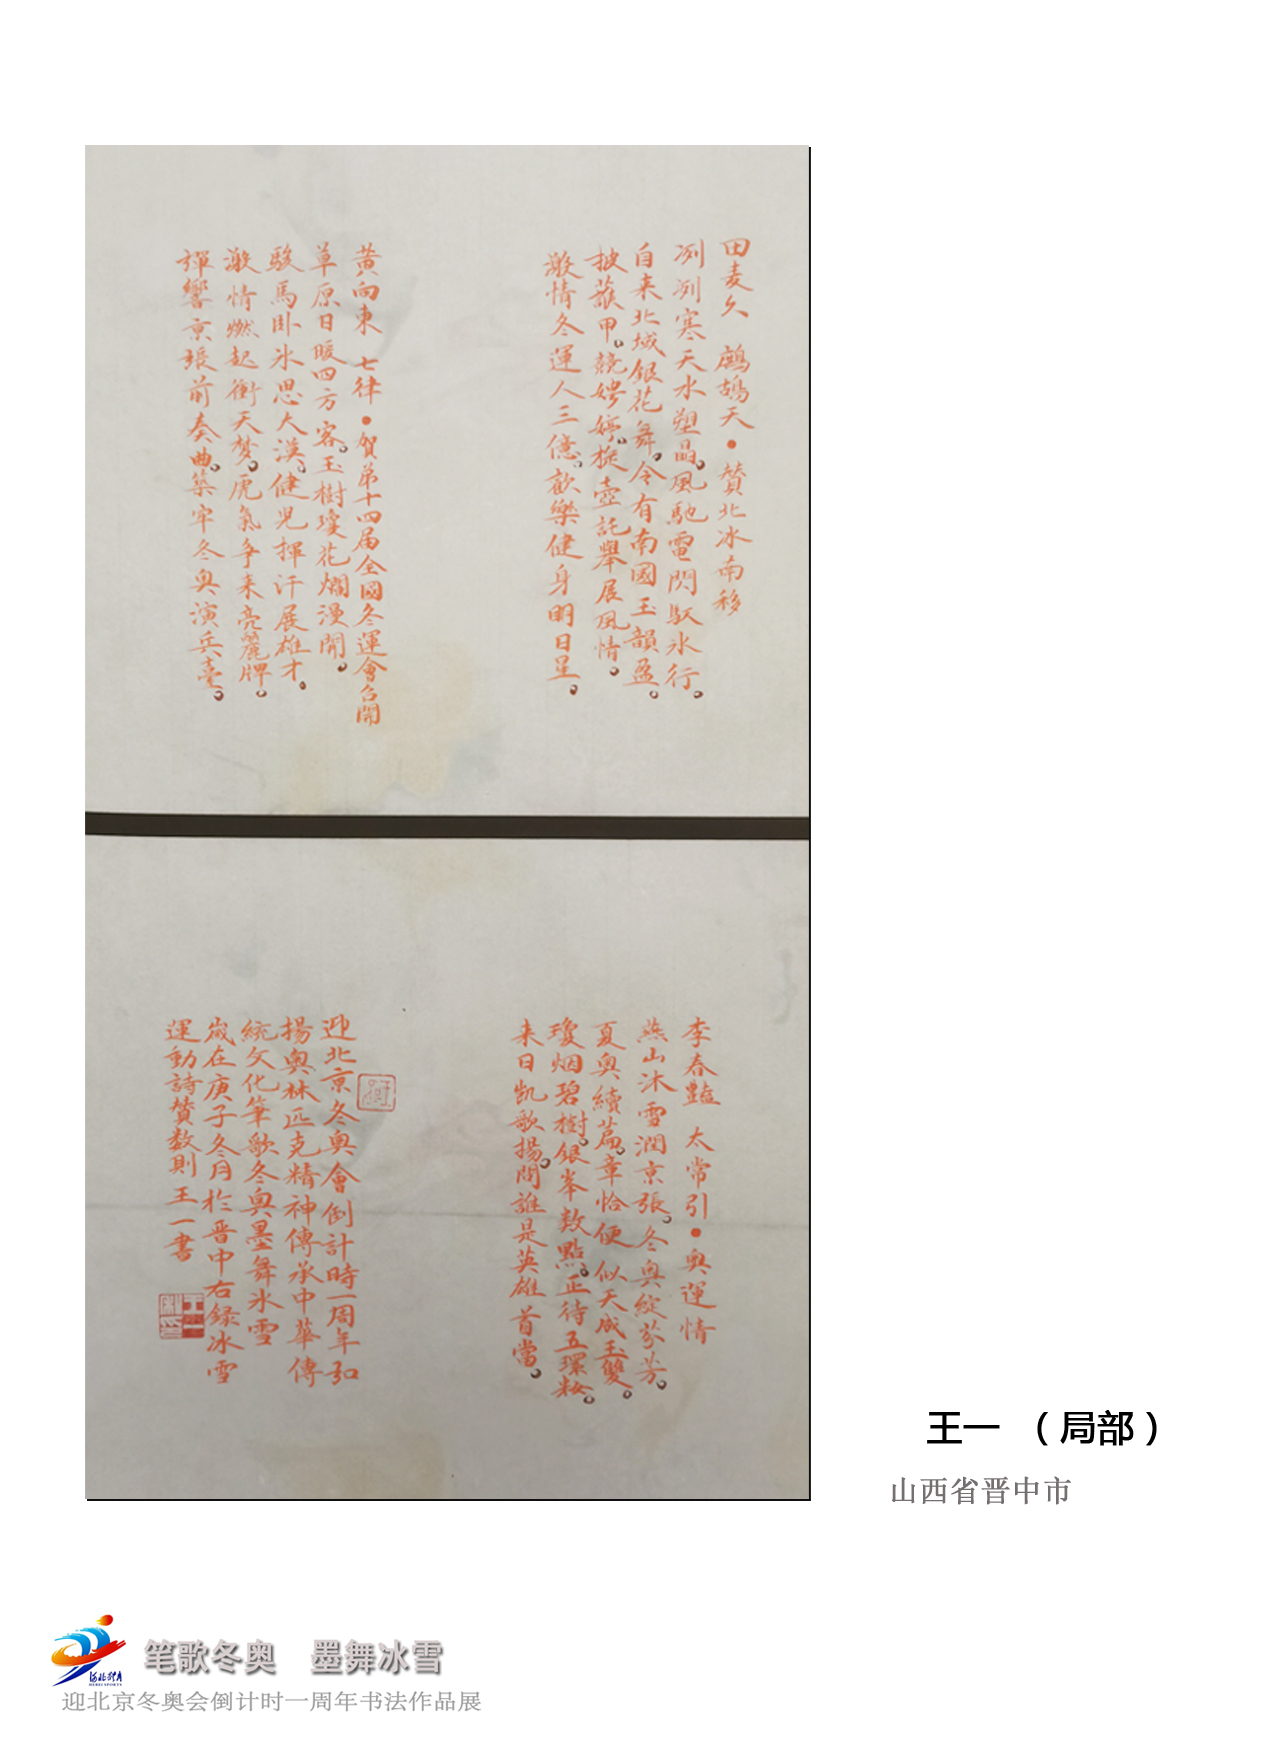 田麦久 鷓鴣天•贊北冰南移
冽冽寒天水塑晶。風馳電閃馭氷行。
自来北域銀花舞。令有南國玉韻盈。
披蔉甲。競娉婷。旋壺託舉展風情。
激情冬運人三億。歡樂健身明日星。
黄向東 七律•賀弟十四届全國冬運會召開
草原日暖四方客。玉樹瓊花爛漫開。
駿馬卧氷思大漠。健児揮汗展雄才。
激情燃起衝天梦。虎氣争来亮麗牌。
禪響京張前奏曲。築牢冬奥演兵臺。
李春豔 太常引•奥運情
燕山沐雪潤京張。冬奥綻芬芳。
夏奥續萹章。恰便似天成玉雙。
瓊烟碧樹。銀峯数點。正待五環粧。
来日凱歌揚。問誰是英雄首當。
迎北京冬奥會倒計時一周年弘
揚奥林匹克精神傳承中華傳
統文化筆歌冬奥墨舞氷雪
歲在庚子冬月於晋中右録冰雪
運動詩贊数則王一書
王一 （局部）
山西省晋中市
河北体育
HEBEI SPORTS
笔歌冬奥 墨舞冰雪
迎北京冬奥会倒计时一周年书法作品展